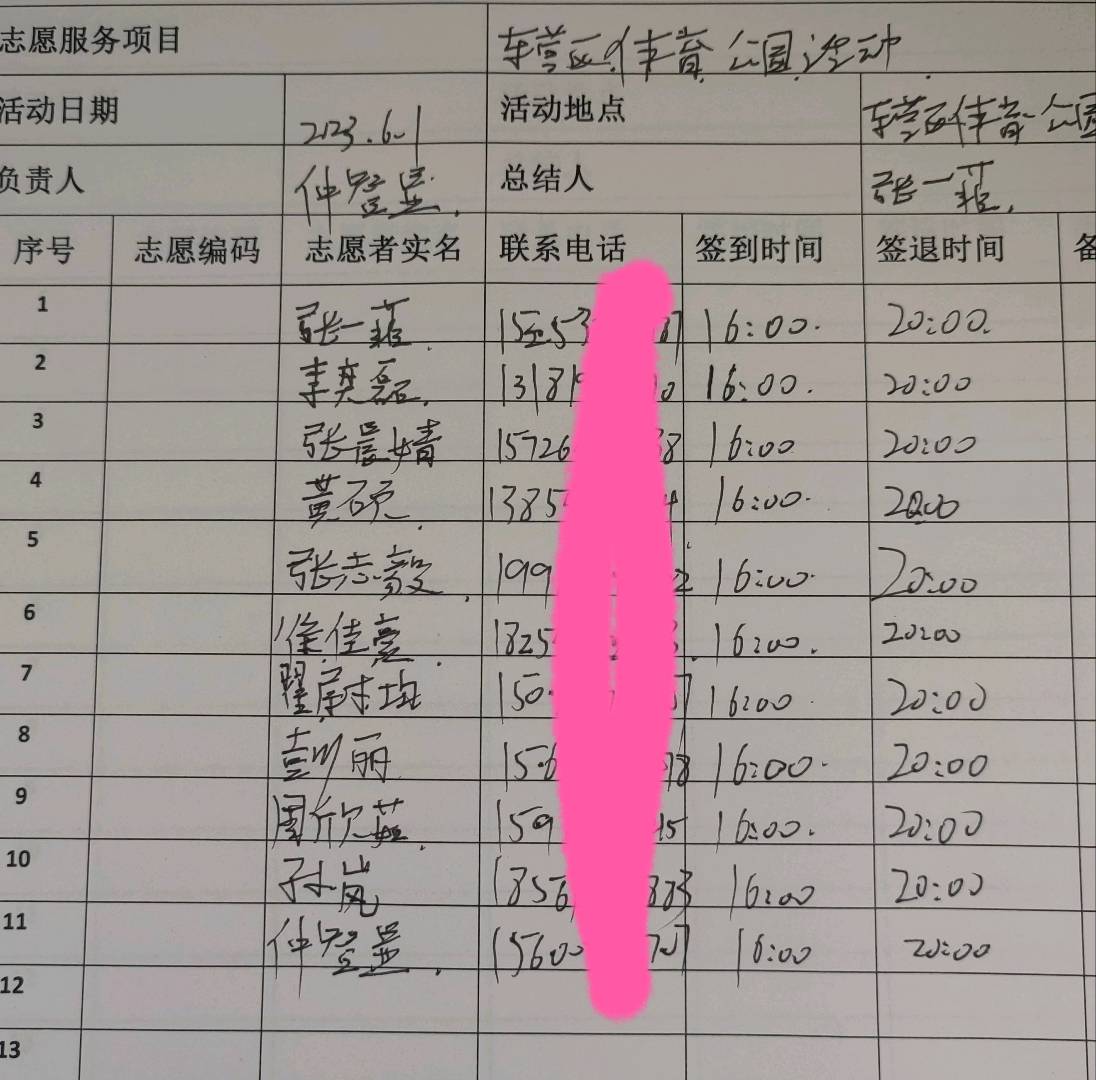 志愿服务项目 东营区体育公园活动
活动日期 2023.6.1 活动地点 东营区体育公园
负责人 仲 总结人 张一菲
序号 志愿编码 志愿者实名 联系电话 签到时间 签退时间 备
1 张一菲. 16:00. 20:00.
2 李奕磊. 1318 16:00. 20:00
3 张晨婧 15726 38 16:00 20:00
4 黄硕. 1385 16:00. 20:00
5 张志毅. 199 2 16:00. 20:00
6 徐佳 . 1825 16:00. 20:00
7 翟 均 150 7 16:00 20:00
8 彭 丽 156 78 16:00. 20:00
9 周欣 . 159 15 16:00. 20:00
10 孙岚 1856 883 16:00 20:00
11 仲 . 15600 707 16:00 20:00
12
13